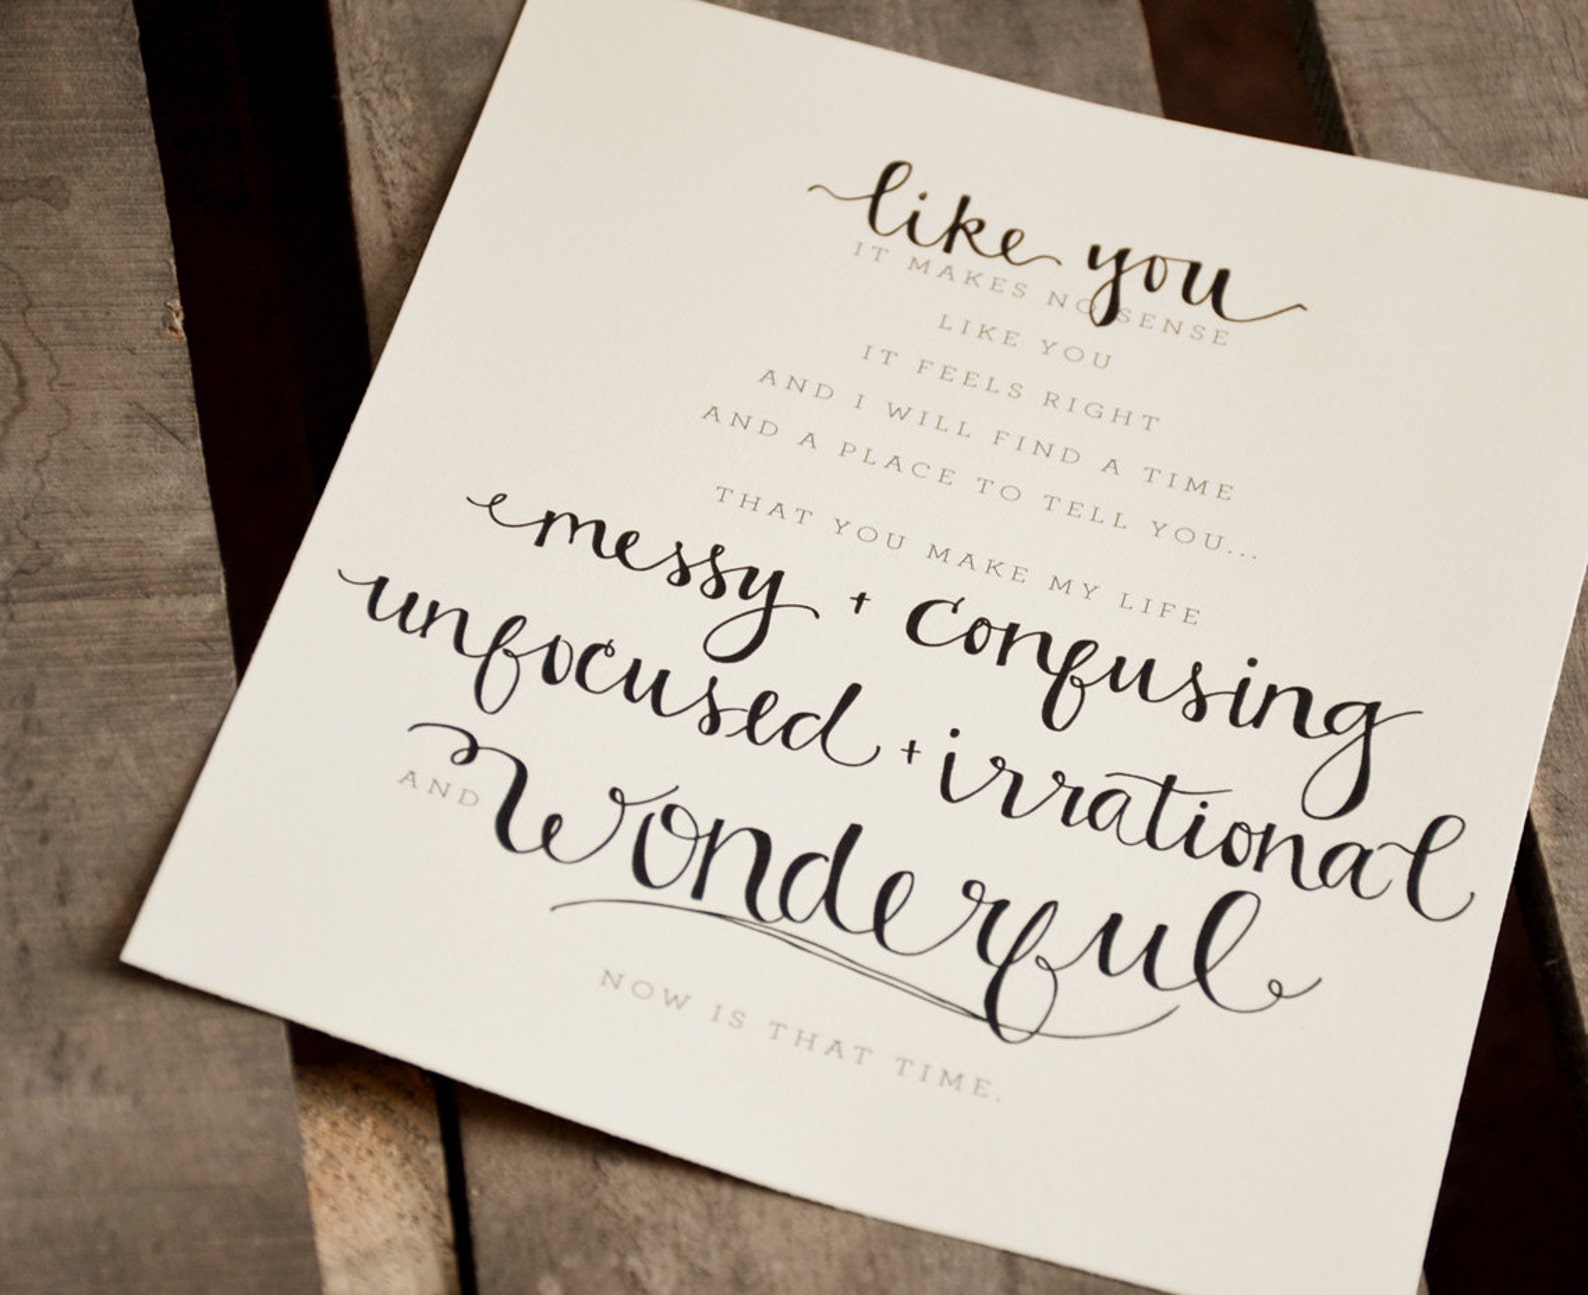 like you
IT MAKES NO SENSE
LIKE YOU
IT FEELS RIGHT
AND I WILL FIND A TIME
AND A PLACE TO TELL YOU...
THAT YOU MAKE MY LIFE
messy + confusing
unfocused + irrational
AND wonderful
NOW IS THAT TIME.